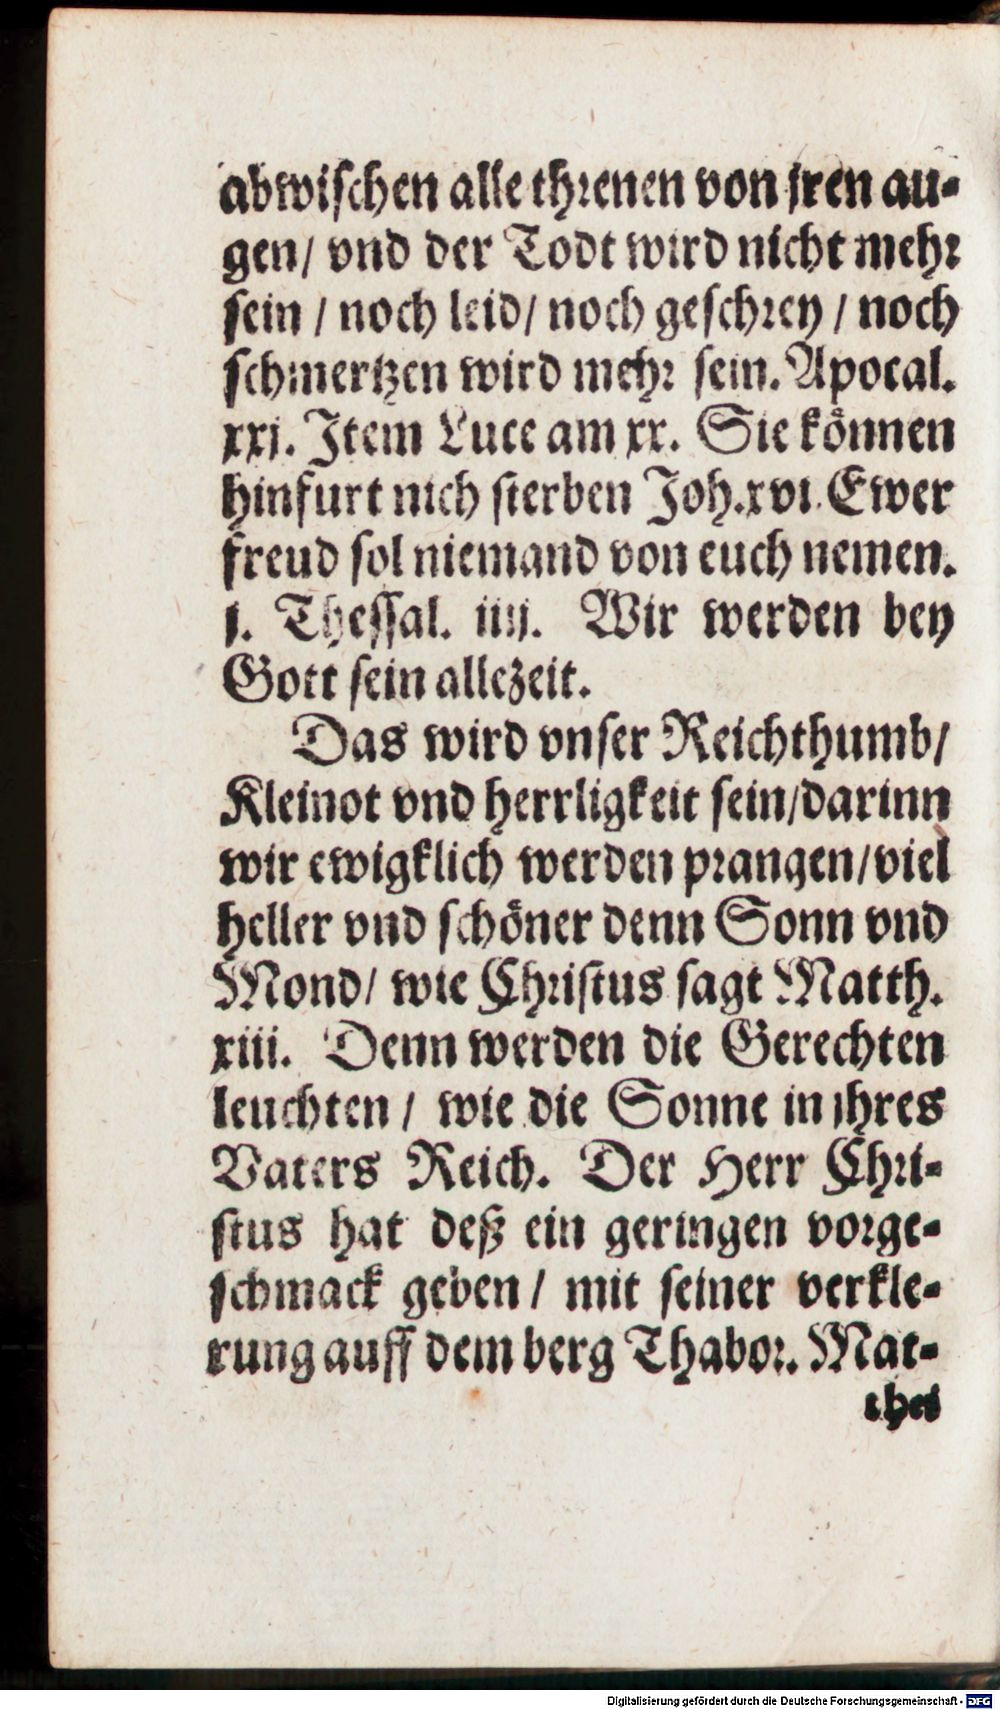 abwischen alle threnen von jren au-
gen/ vnd der Todt wird nicht mehr
sein / noch leid/ noch geschrey / noch
schmertzen wird mehr sein. Apocal.
xxj. Item Luce am xx. Sie können
hinfurt nich sterben Joh. xvi. Ewer
freud sol niemand von euch nemen.
j. Thessal. iiij. Wir werden bey
Gott sein allezeit.
Das wird vnser Reichthumb/
Kleinot vnd herrligkeit sein/darinn
wir ewigklich werden prangen/viel
heller vnd schöner denn Sonn vnd
Mond/ wie Christus sagt Matth.
xiii. Denn werden die Gerechten
leuchten / wie die Sonne in jhres
Vaters Reich. Der Herr Chri-
stus hat deß ein geringen vorge-
schmack geben / mit seiner verkle-
rung auff dem berg Thabor. Mat-
thei
Digitalisierung gefördert durch die Deutsche Forschungsgemeinschaft - DFG